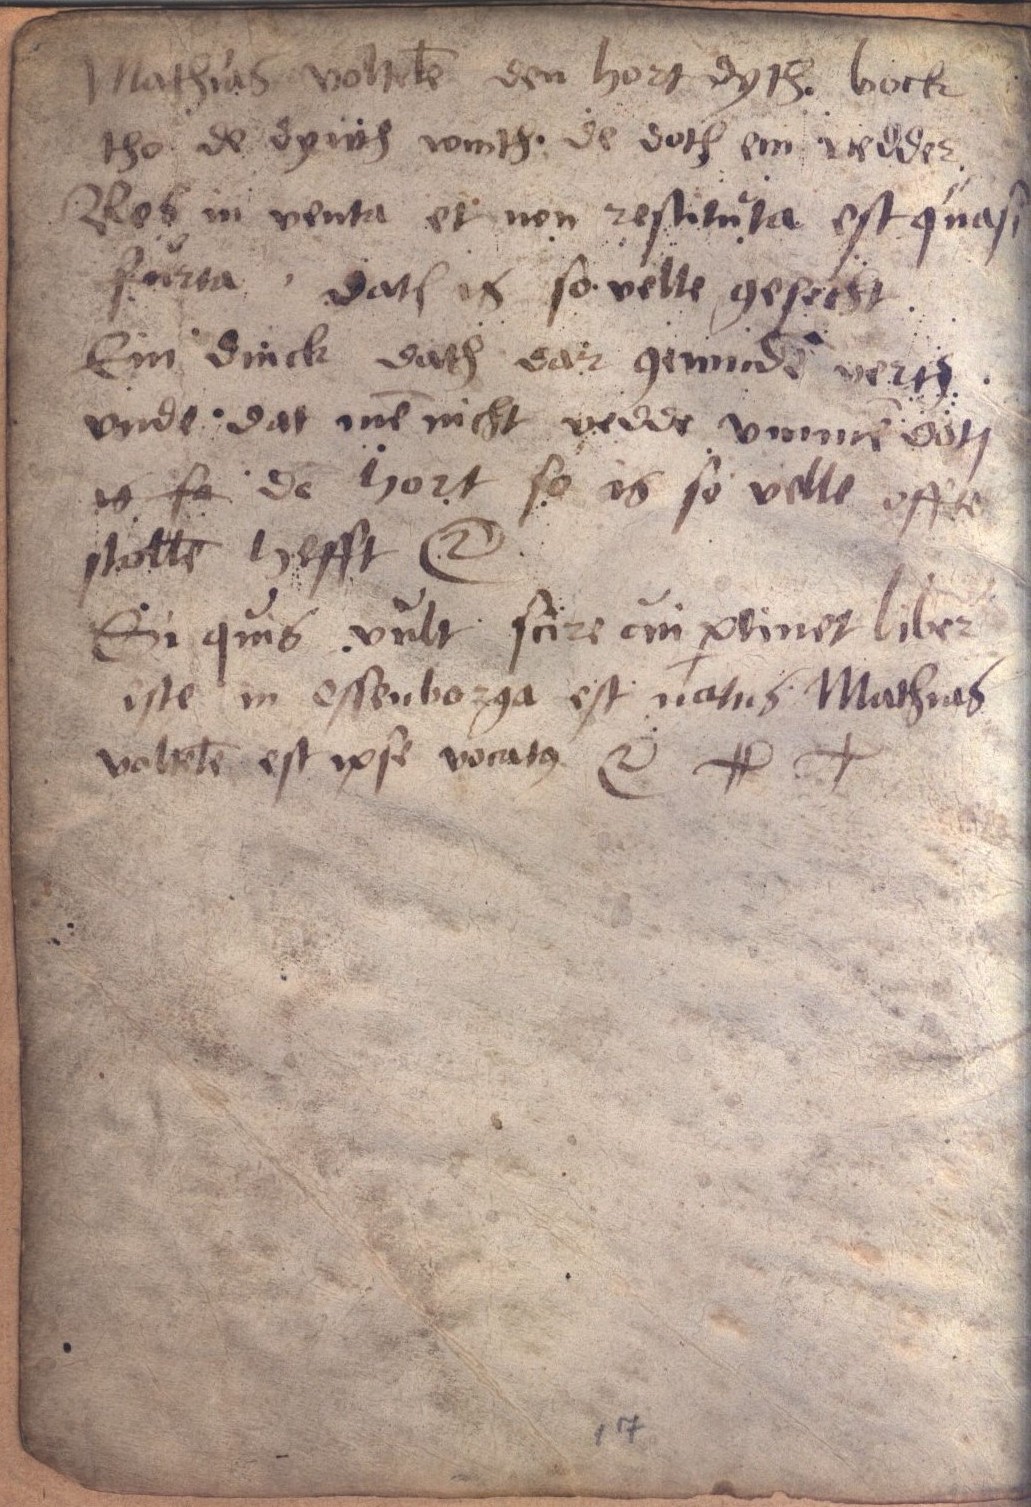 Mathias voltelē den hort dyth. bock
tho de dyth vinth. de doth em vedder
Res in venta et non restituta est quasi
furta, dath is so velle gesecht.
Ein dinck dath dar gewundē werth.
vnde dat mē nicht vedde vmmē dath
is so de hort so is so velle offte
stollē hefft
Si quis vult scire cui ptinet liber
iste in essenborga est natus Mathias
voltelē est ipse vocatꝯ
17